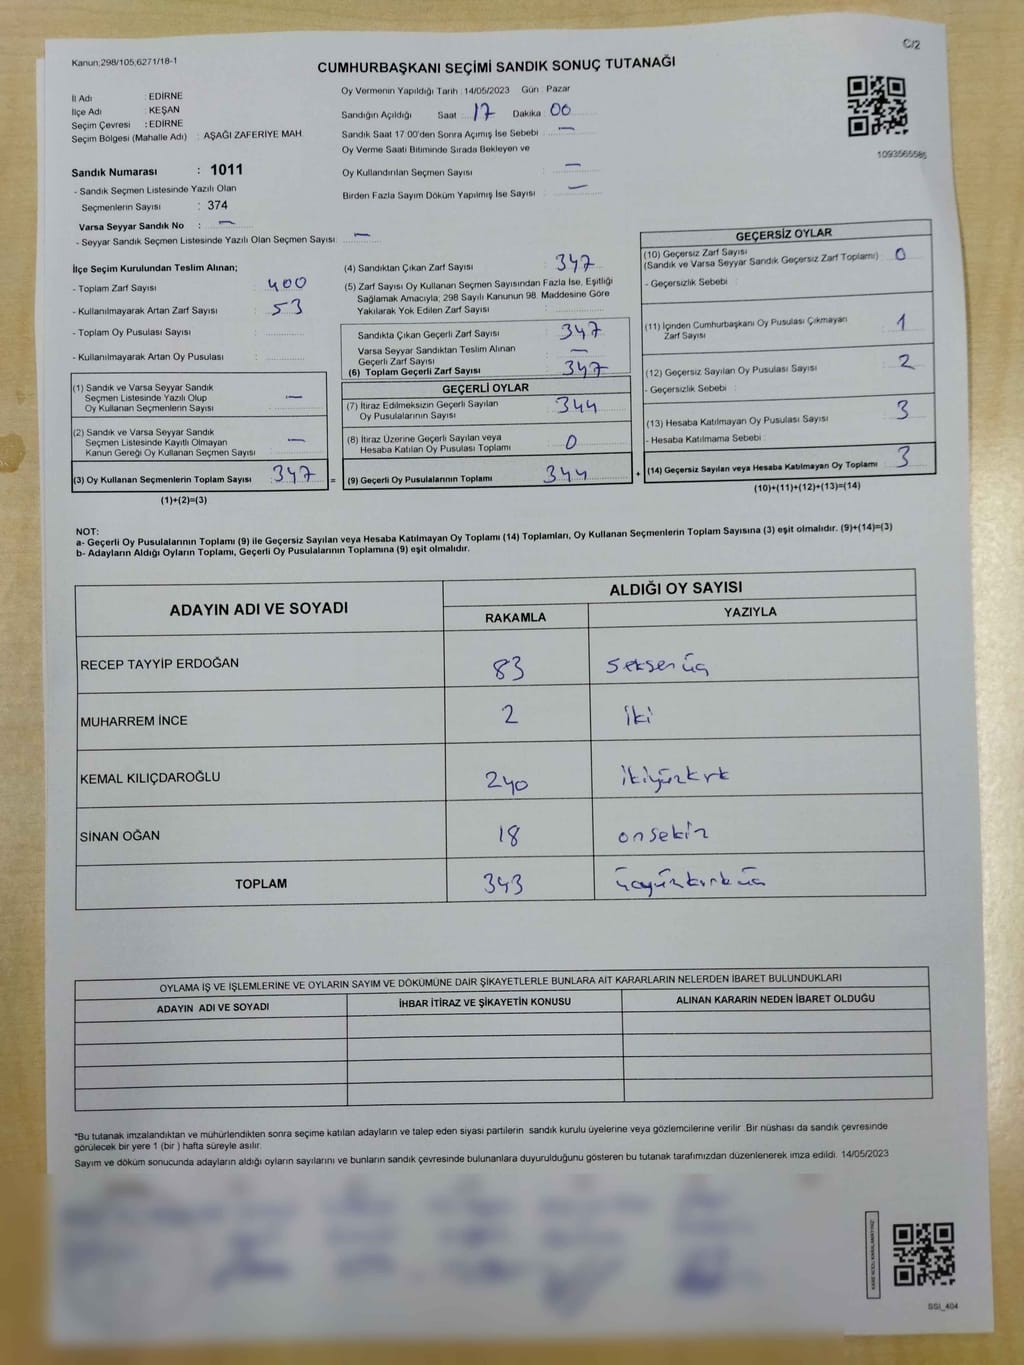 C/2
Kanun;298/105;6271/18-1
CUMHURBAŞKANI SEÇİMİ SANDIK SONUÇ TUTANAĞI
İl Adı : EDİRNE
İlçe Adı : KEŞAN
Seçim Çevresi : EDİRNE
Seçim Bölgesi (Mahalle Adı) : AŞAĞI ZAFERİYE MAH.
Oy Vermenin Yapıldığı Tarih : 14/05/2023 Gün : Pazar
Sandığın Açıldığı Saat : 17 Dakika : 00
Sandık Saat 17:00'den Sonra Açımış İse Sebebi : —
Oy Verme Saati Bitiminde Sırada Bekleyen ve
Oy Kullandırılan Seçmen Sayısı : —
Birden Fazla Sayım Döküm Yapılmış İse Sayısı : —
1093565585
Sandık Numarası : 1011
- Sandık Seçmen Listesinde Yazılı Olan
Seçmenlerin Sayısı : 374
Varsa Seyyar Sandık No : —
- Seyyar Sandık Seçmen Listesinde Yazılı Olan Seçmen Sayısı: —
İlçe Seçim Kurulundan Teslim Alınan;
- Toplam Zarf Sayısı : 400
- Kullanılmayarak Artan Zarf Sayısı : 53
- Toplam Oy Pusulası Sayısı :
- Kullanılmayarak Artan Oy Pusulası :
(1) Sandık ve Varsa Seyyar Sandık
Seçmen Listesinde Yazılı Olup
Oy Kullanan Seçmenlerin Sayısı : —
(2) Sandık ve Varsa Seyyar Sandık
Seçmen Listesinde Kayıtlı Olmayan
Kanun Gereği Oy Kullanan Seçmen Sayısı : —
(3) Oy Kullanan Seçmenlerin Toplam Sayısı : 347 =
(1)+(2)=(3)
(4) Sandıktan Çıkan Zarf Sayısı : 347
(5) Zarf Sayısı Oy Kullanan Seçmen Sayısından Fazla İse, Eşitliği
Sağlamak Amacıyla; 298 Sayılı Kanunun 98. Maddesine Göre
Yakılarak Yok Edilen Zarf Sayısı :
Sandıkta Çıkan Geçerli Zarf Sayısı : 347
Varsa Seyyar Sandıktan Teslim Alınan
Geçerli Zarf Sayısı : —
(6) Toplam Geçerli Zarf Sayısı : 347
GEÇERLİ OYLAR
(7) İtiraz Edilmeksizin Geçerli Sayılan
Oy Pusulalarının Sayısı : 344
(8) İtiraz Üzerine Geçerli Sayılan veya
Hesaba Katılan Oy Pusulası Toplamı : 0
(9) Geçerli Oy Pusulalarının Toplamı : 344 +
GEÇERSİZ OYLAR
(10) Geçersiz Zarf Sayısı
(Sandık ve Varsa Seyyar Sandık Geçersiz Zarf Toplamı) : 0
- Geçersizlik Sebebi :
(11) İçinden Cumhurbaşkanı Oy Pusulası Çıkmayan
Zarf Sayısı : 1
(12) Geçersiz Sayılan Oy Pusulası Sayısı : 2
- Geçersizlik Sebebi :
(13) Hesaba Katılmayan Oy Pusulası Sayısı : 3
- Hesaba Katılmama Sebebi :
(14) Geçersiz Sayılan veya Hesaba Katılmayan Oy Toplamı : 3
(10)+(11)+(12)+(13)=(14)
NOT:
a- Geçerli Oy Pusulalarının Toplamı (9) ile Geçersiz Sayılan veya Hesaba Katılmayan Oy Toplamı (14) Toplamları, Oy Kullanan Seçmenlerin Toplam Sayısına (3) eşit olmalıdır. (9)+(14)=(3)
b- Adayların Aldığı Oyların Toplamı, Geçerli Oy Pusulalarının Toplamına (9) eşit olmalıdır.
ADAYIN ADI VE SOYADI
ALDIĞI OY SAYISI
RAKAMLA YAZIYLA
RECEP TAYYİP ERDOĞAN 83 seksen üç
MUHARREM İNCE 2 iki
KEMAL KILIÇDAROĞLU 240 ikiyüzkırk
SİNAN OĞAN 18 onsekiz
TOPLAM 343 üçyüzkırküç
OYLAMA İŞ VE İŞLEMLERİNE VE OYLARIN SAYIM VE DÖKÜMÜNE DAİR ŞİKAYETLERLE BUNLARA AİT KARARLARIN NELERDEN İBARET BULUNDUKLARI
ADAYIN ADI VE SOYADI İHBAR İTİRAZ VE ŞİKAYETİN KONUSU ALINAN KARARIN NEDEN İBARET OLDUĞU
*Bu tutanak imzalandıktan ve mühürlendikten sonra seçime katılan adayların ve talep eden siyasi partilerin sandık kurulu üyelerine veya gözlemcilerine verilir. Bir nüshası da sandık çevresinde
görülecek bir yere 1 (bir ) hafta süreyle asılır.
Sayım ve döküm sonucunda adayların aldığı oyların sayılarını ve bunların sandık çevresinde bulunanlara duyurulduğunu gösteren bu tutanak tarafımızdan düzenlenerek imza edildi. 14/05/2023
SSİ_404